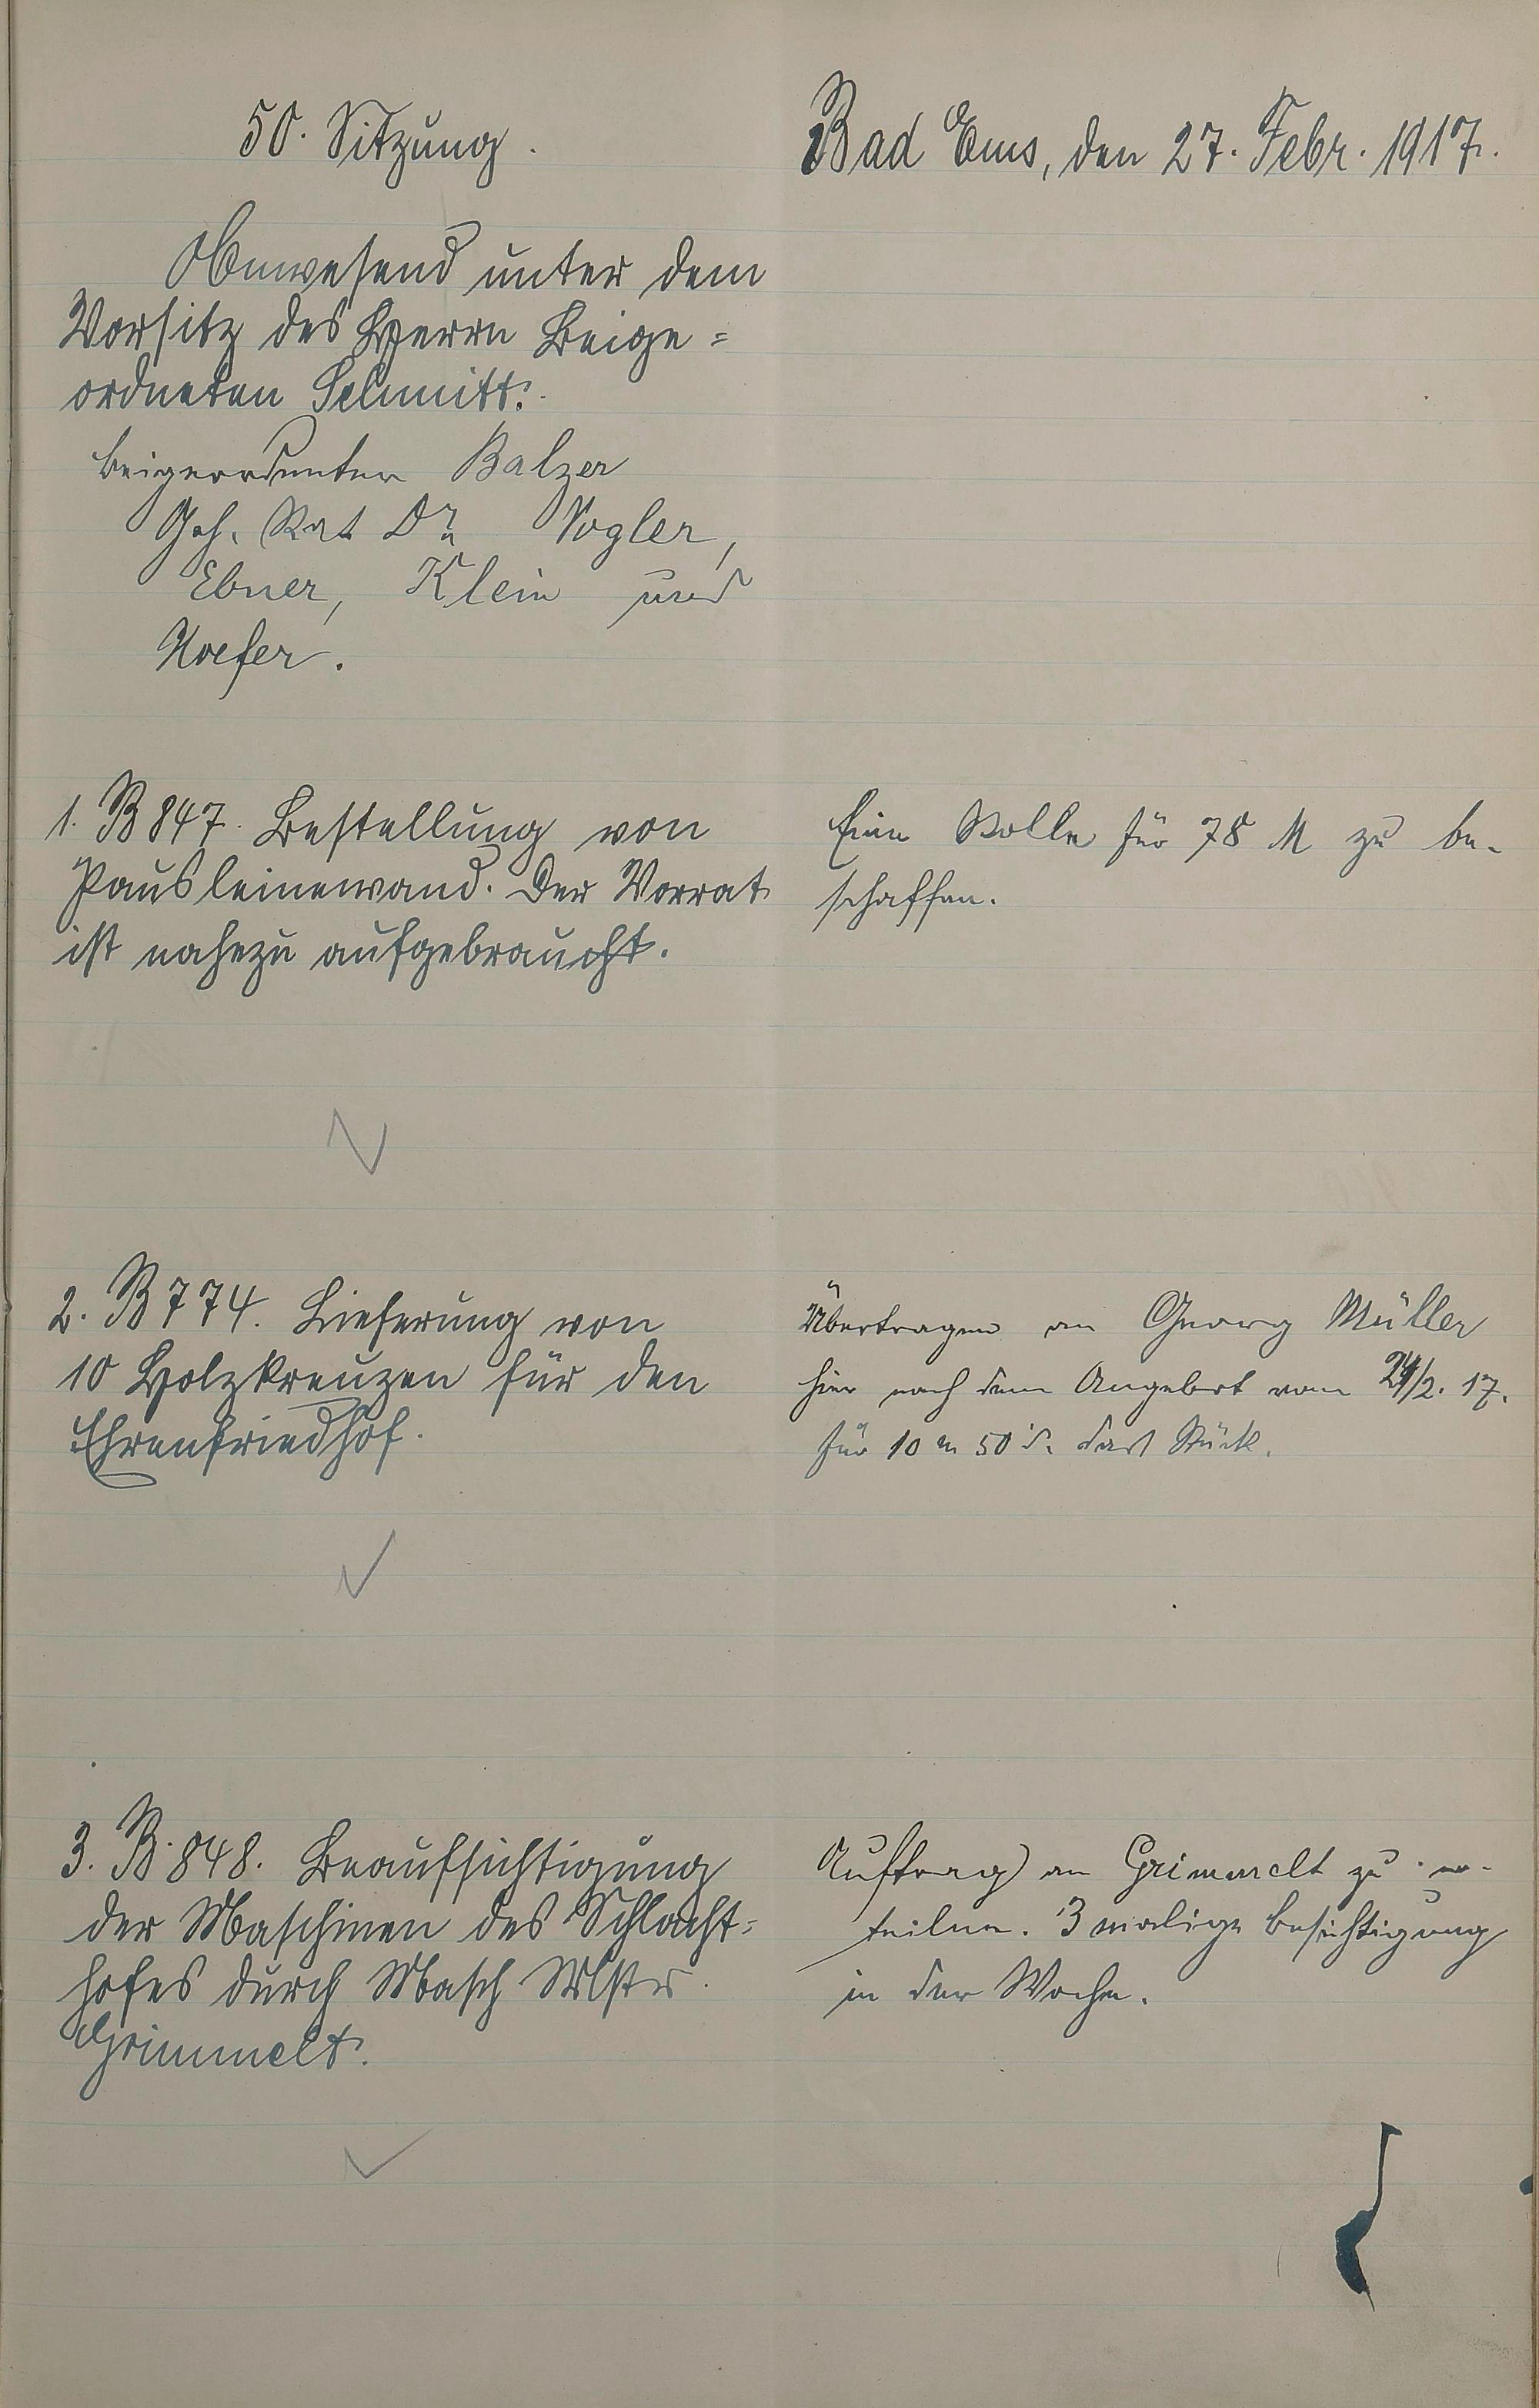 50. Sitzung.
Bad Ems, den 27. Febr. 1917.
Anwesend unter dem
Vorsitz des Herrn Beige=
ordneten Schmitt:
Beigeordneter Balzer
Geh. Rat Dr. Vogler,
Ebner, Klein und
Hoefer.
1. B 847. Bestellung von
Pausleinewand. Der Vorrat
ist nahezu aufgebraucht.
Eine Rolle für 78 M zu be-
schaffen.
2. B 774. Lieferung von
10 Holzkreuzen für den
Ehrenfriedhof.
Übertragen an Georg Müller
hier nach dem Angebot vom 24/2. 17.
für 10 M 50 d. das Stück.
3. B. 848. Beaufsichtigung
der Maschinen des Schlacht=
hofes durch Masch. Mstr.
Grimmelt.
Auftrag an Grimmelt zu er-
teilen. 3 malige Besichtigung
in der Woche.